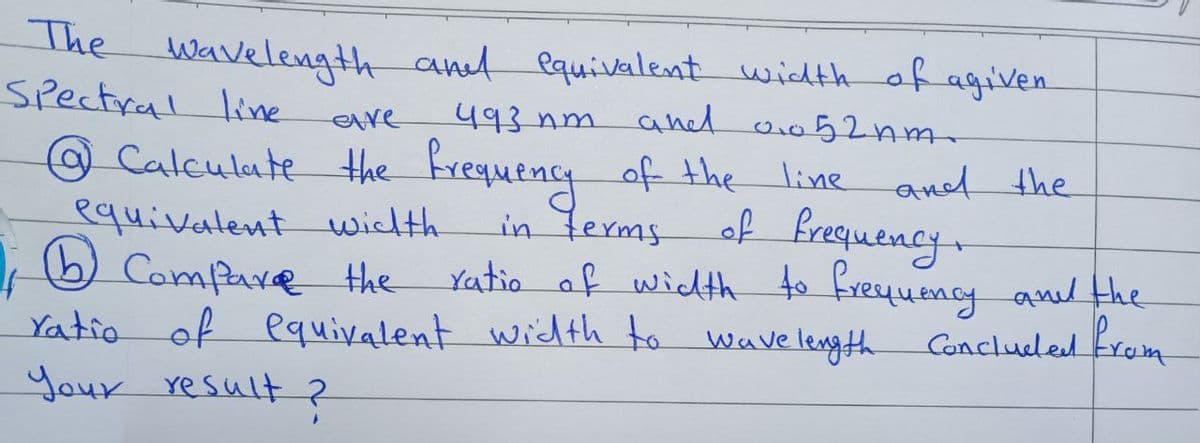 The wavelength and equivalent width of agiven
Spectral line are 493 nm and 0.052nm.
ⓐ Calculate the frequency of the line and the
equivalent width in terms of frequency.
ⓑ Compare the ratio of width to frequency and the
ratio of equivalent width to wavelength Concluded from
your result ?